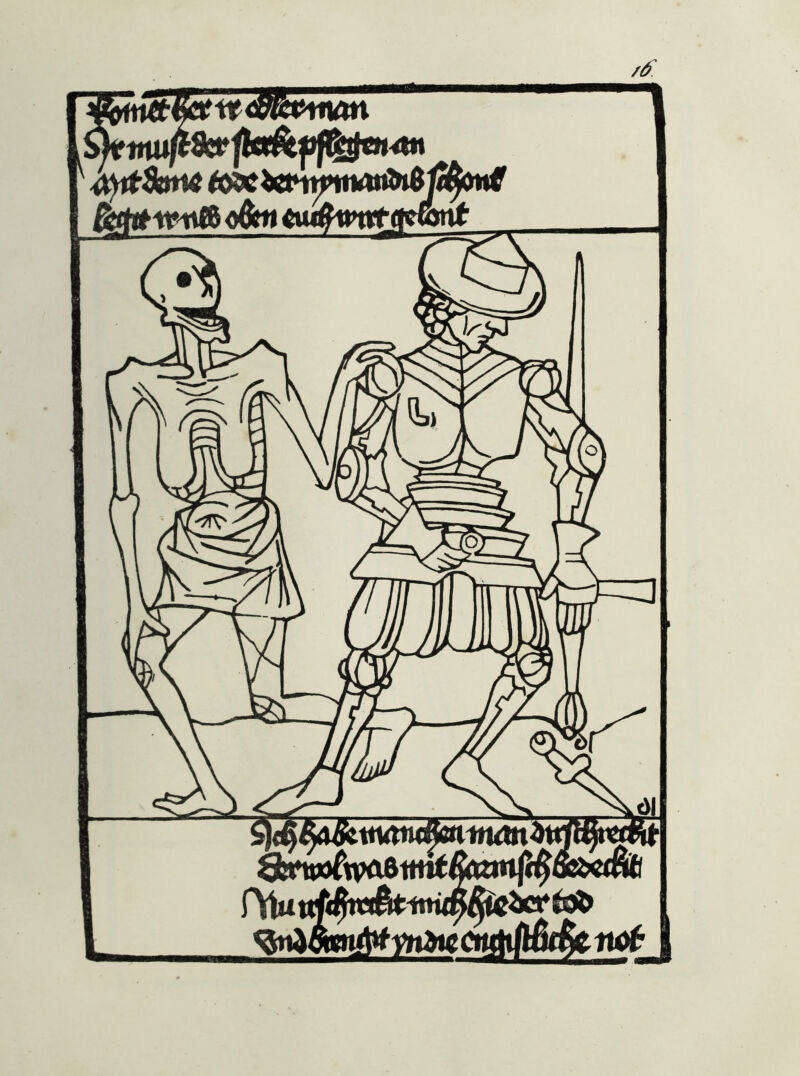 16.
Komet her ir edlerman
Ir must der sterke pflegen an
Mit deme tode der nymandis schont
legit ir uns oben euch wirt gelont
Ich habe manchen man dirschreckit
der wol was mit harnisch bedeckit
Nu irschreckit mich hie der tod
Und brengit yn die engistliche not